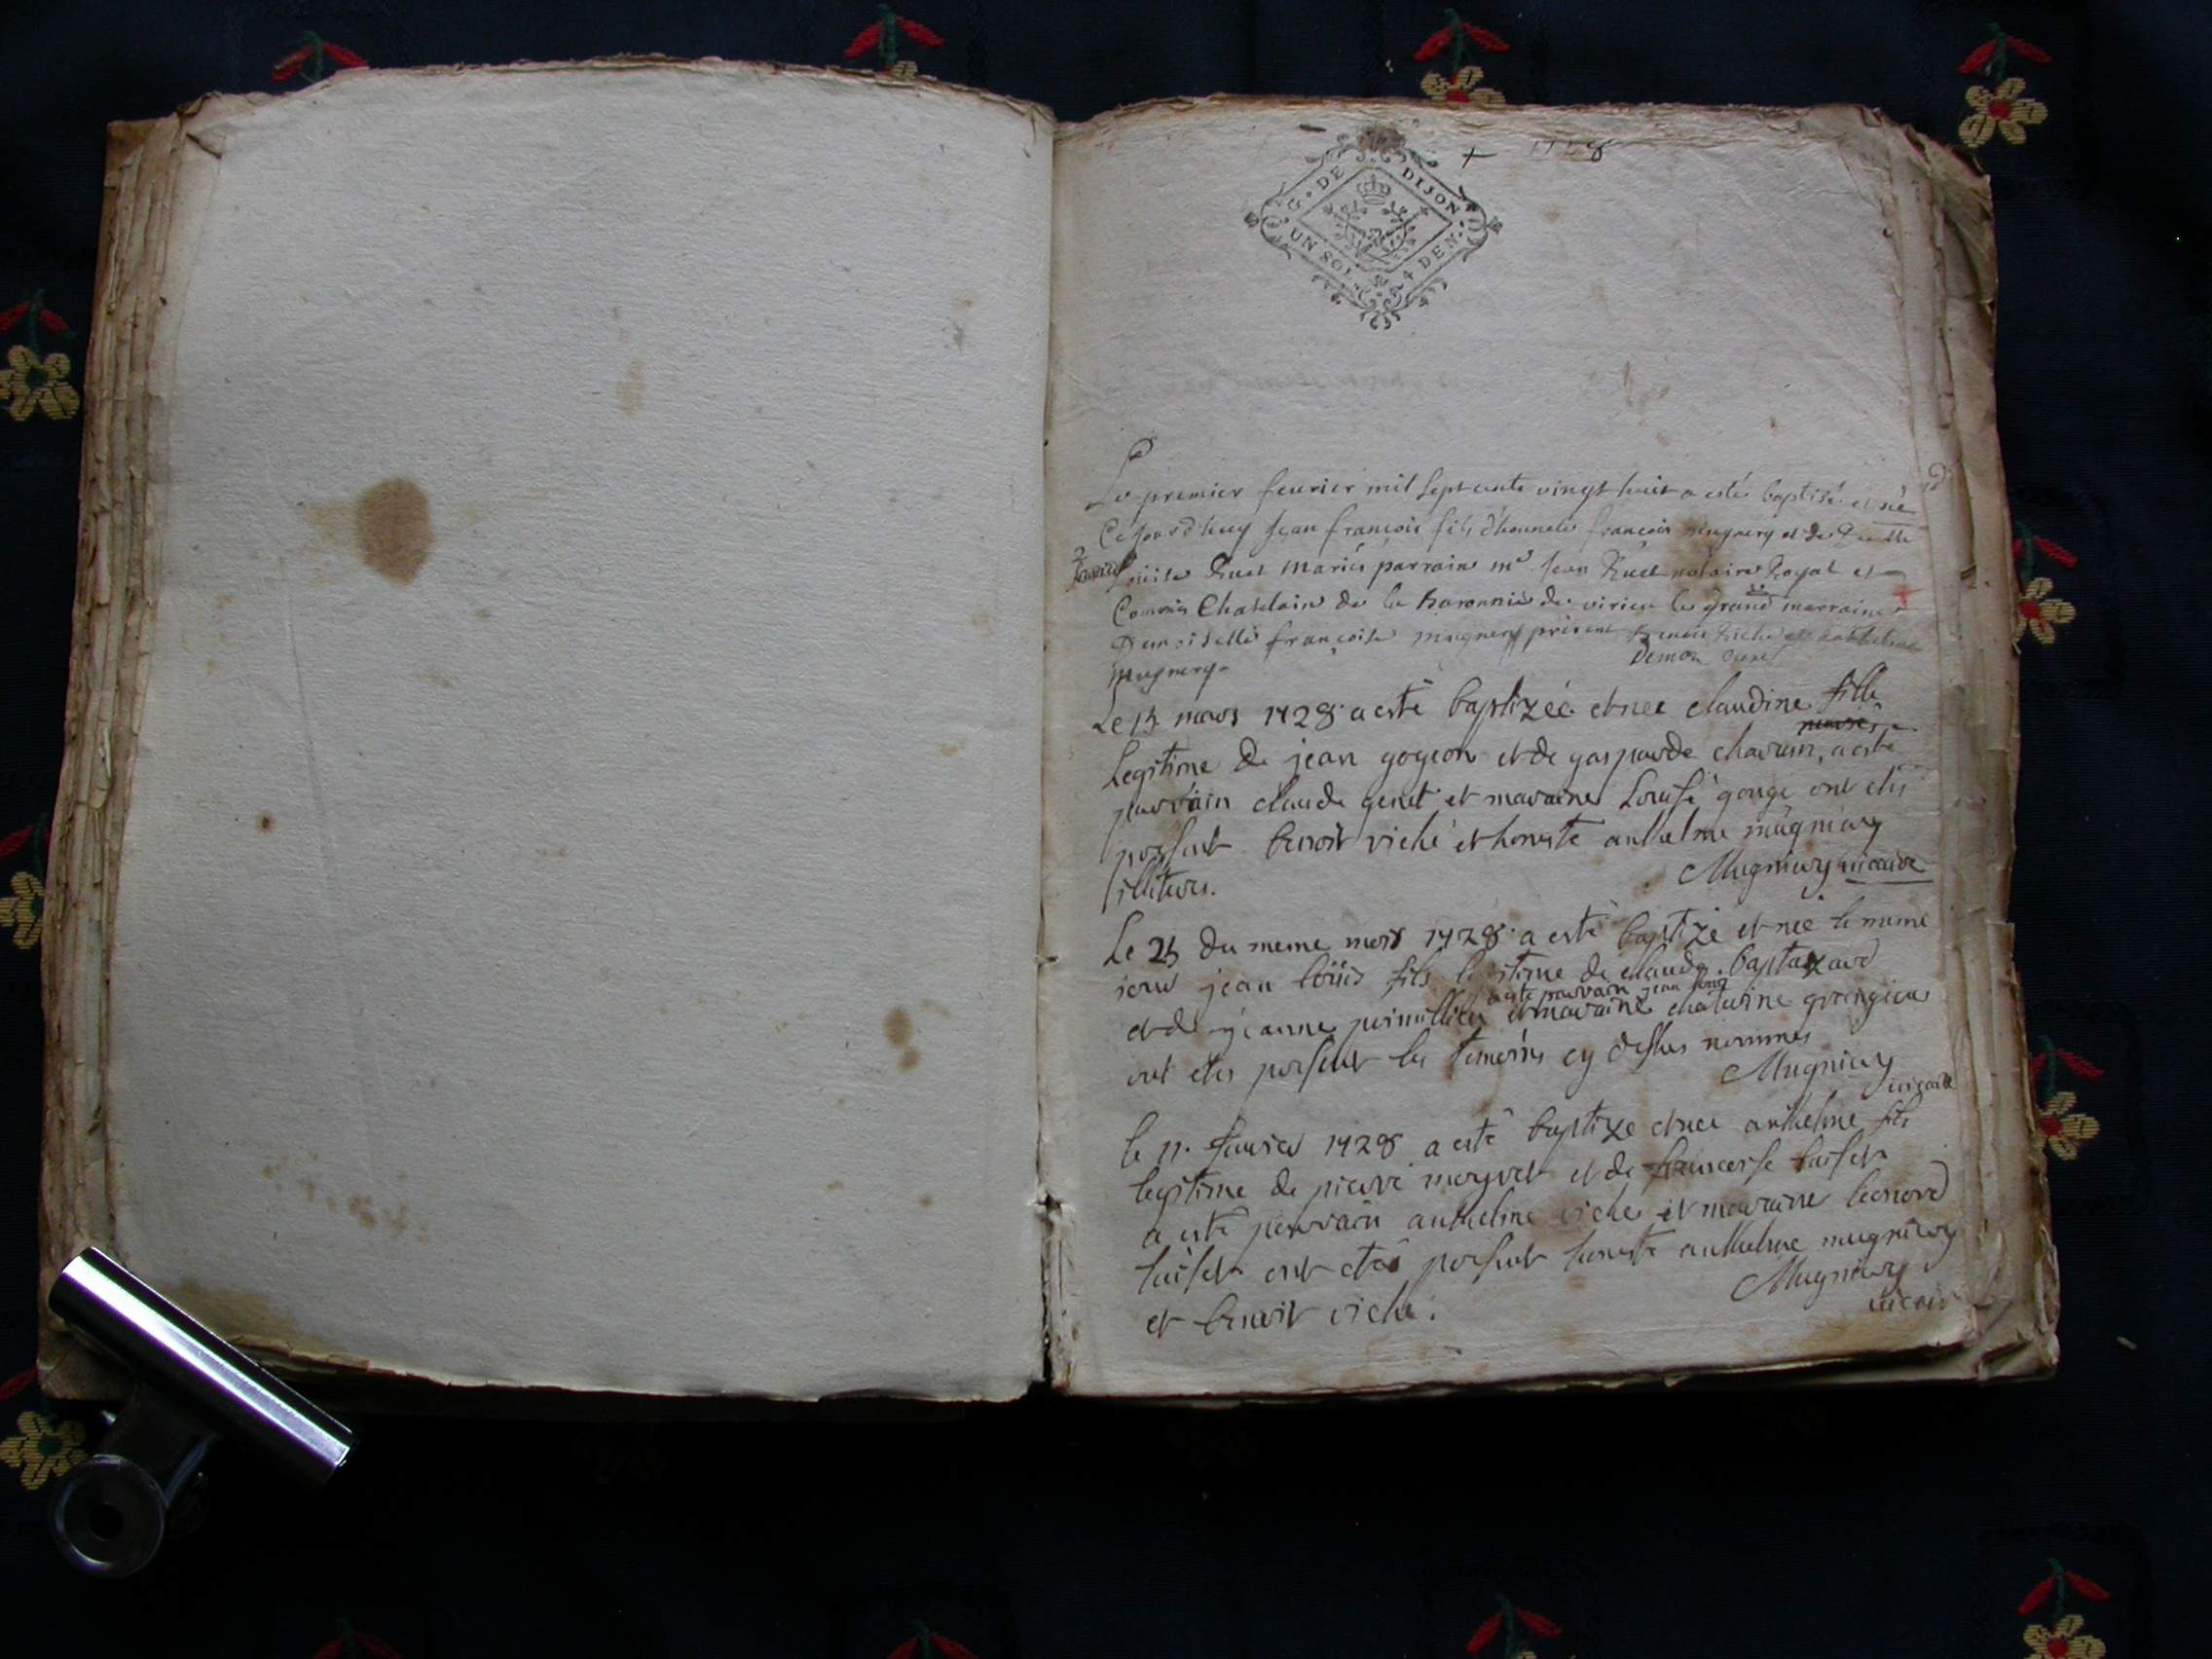 + 1728
G. DE DIJON
UN SOL 4 DEN.
Le premier feurier mil sept cents vingt huit a esté baptisé et né
Ce jourd'huy jean françois fils d'honneste françois mugnery et de
Louise Ruet mariés parrain mr jean Ruet notaire Royal et
Commis Chatelain de la baronnie de virieu le grand marraine
Demoiselle françoise mugnery présent benoit Riche et anthelme
mugnery. Demon curé
Le 13 mars 1728 a esté baptizéé et nee claudine fille
Legitime de jean gogeon et de gasparde chavam, a esté
parrain claude genet et maraine Louise gouge ont etés
present benoit viché et honeste anthelme mugniery
illiteres. Mugniery vicaire
Le 25 du meme mois 1728 a esté baptizé et nee le meme
jour jean loüis fils legitime de claude baptazard
a esté parrain jean
et de jeanne et maraine chaterine
ont etes present les temoins cy dessus nommes
Mugniery
vicaire
le 11. 1728 a esté baptize et nee anthelme fils
legitime de pierre et de francoise
a esté parrain anthelme viche et maraine leonard
ont etés present honeste anthelme mugniery
et benoit viché. Mugniery
vicaire